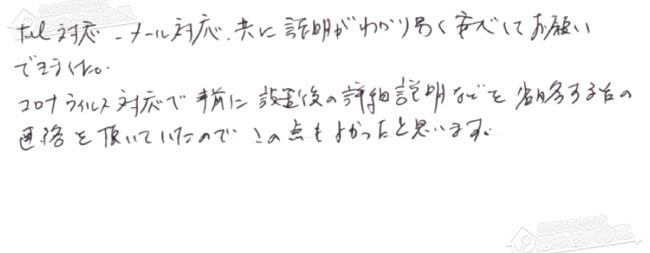 tel対応・メール対応、共に説明がわかり易く安心してお願い
できました。
コロナウィルス対応で事前に設置後の詳細説明などを省略する旨の
連絡を頂いていたのでこの点もよかったと思います。